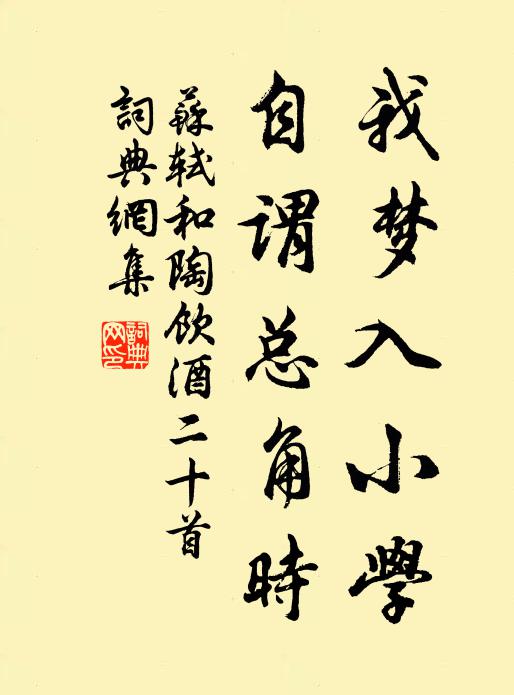 我梦入小學
自谓总角時
蘇轼和陶饮酒二十首
詞典網集
詞典網印